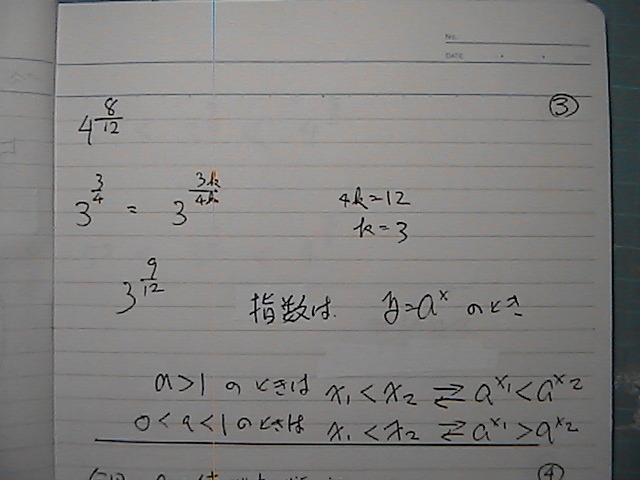 No.
DATE
③
4^{8/12}
3^{3/4} = 3^{3k/4k} 4k=12
k=3
3^{9/12}
指数は y=a^x のとき
a>1 のときは x₁<x₂ ⇄ a^{x₁}<a^{x₂}
0<a<1のときは x₁<x₂ ⇄ a^{x₁}>a^{x₂}
④